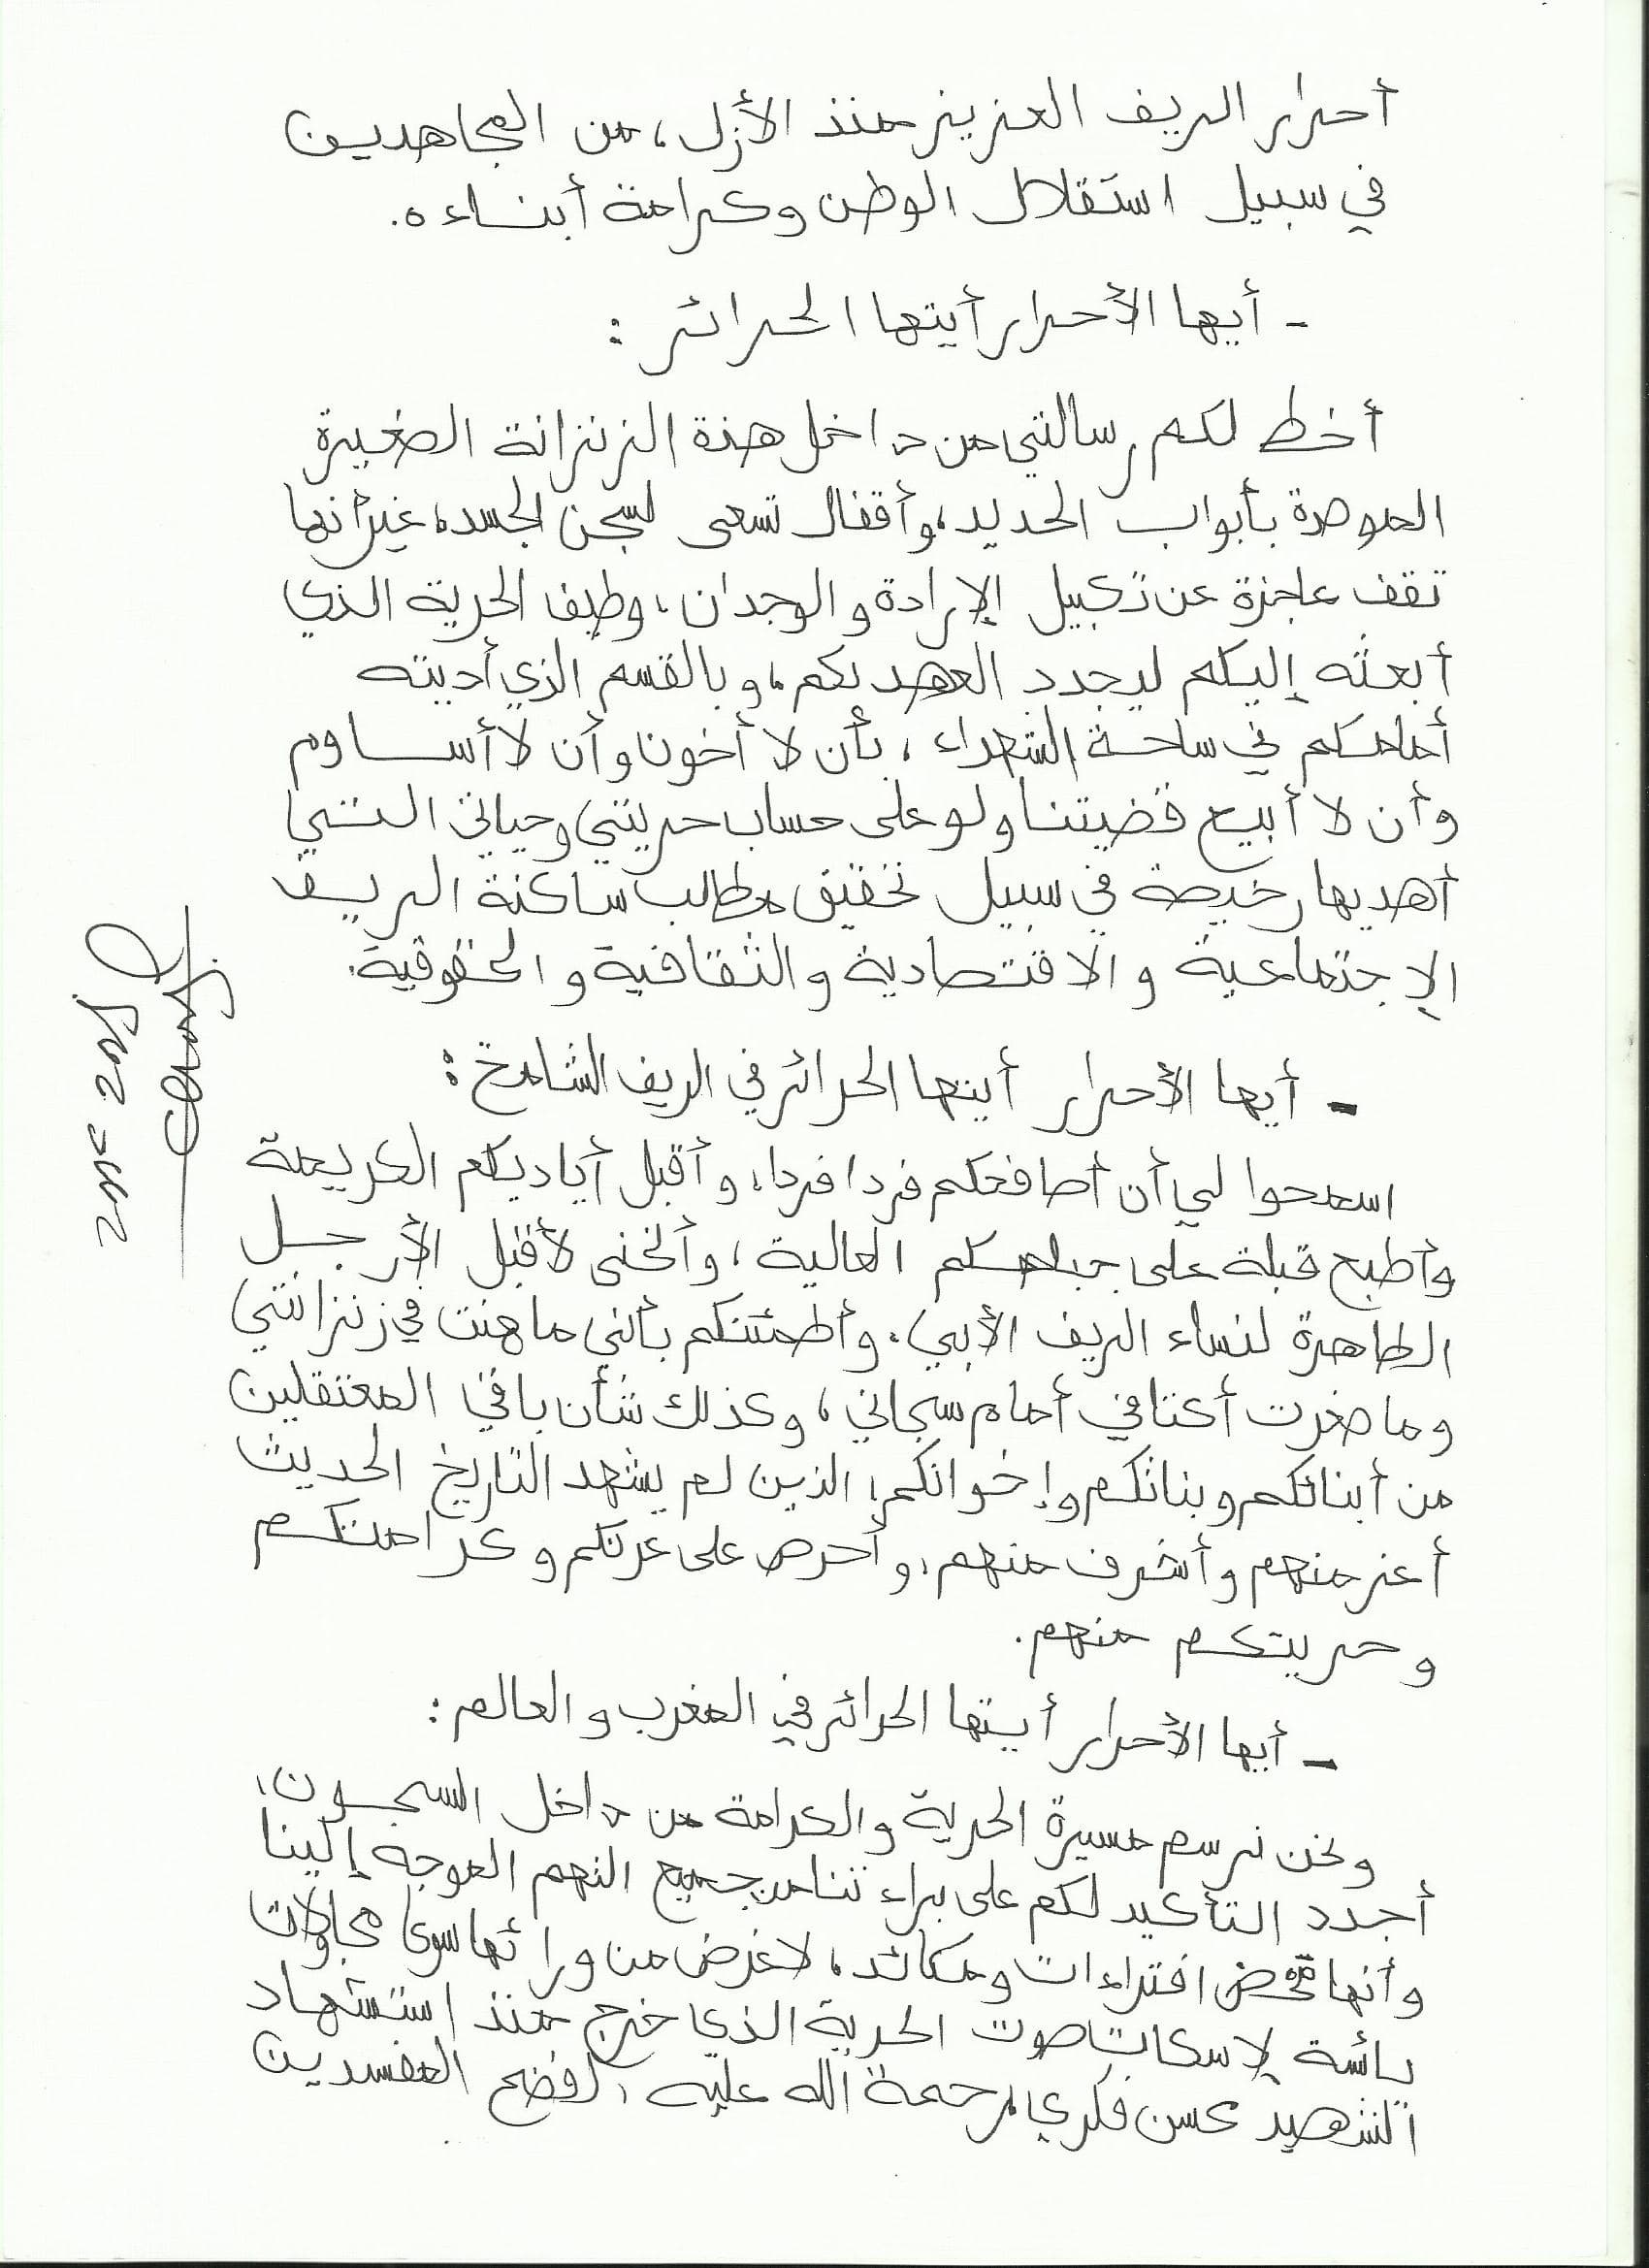 أحرار الريف العزيز منذ الأزل، من المجاهدين
في سبيل استقلال الوطن وكرامة أبناءه.
- أيها الأحرار أيتها الحرائر :
أخط لكم رسالتي من داخل هذه الزنزانة الصغيرة
الموصدة بأبواب الحديد، وأقفال تسعى لسجن الجسد، غير أنها
تقف عاجزة عن تكبيل الإرادة والوجدان، وطيف الحرية الذي
أبعثه إليكم ليجدد العهد بكم، وبالقسم الذي أديته
أمامكم في ساحة الشهداء، بأن لا أخون وأن لا أساوم
وأن لا أبيع قضيتنا ولو على حساب حريتي وحياتي التي
أهديها رخيصة في سبيل تحقيق مطالب ساكنة الريف
الإجتماعية والاقتصادية والثقافية والحقوقية.
- أيها الأحرار أيتها الحرائر في الريف الشامخ :
اسمحوا لي أن أصافحكم فردا فردا، وأقبل أياديكم الكريمة
وأطبع قبلة على جباهكم العالية، وأنحني لأقبل الأرجل
الطاهرة لنساء الريف الأبي. وأطمئنكم بأنني ما هنت في زنزانتي
وما صغرت أكتافي أمام سجاني، وكذلك شأن باقي المعتقلين
من أبنائكم وبناتكم وإخوانكم، الذين لم يشهد التاريخ الحديث
أعز منهم وأشرف منهم، وأحرص على عزتكم وكرامتكم
وحريتكم منهم.
- أيها الأحرار أيتها الحرائر في المغرب والعالم :
ونحن نرسم مسيرة الحرية والكرامة من داخل السجون،
أجدد التأكيد لكم على براءتنا من جميع التهم الموجه إلينا
وأنها محض افتراءات ومكائد، لا غرض من ورائها سوى محاولات
يائسة لإسكات صوت الحرية الذي خرج منذ استشهاد
الشهيد محسن فكري رحمة الله عليه، لفضح المفسدين